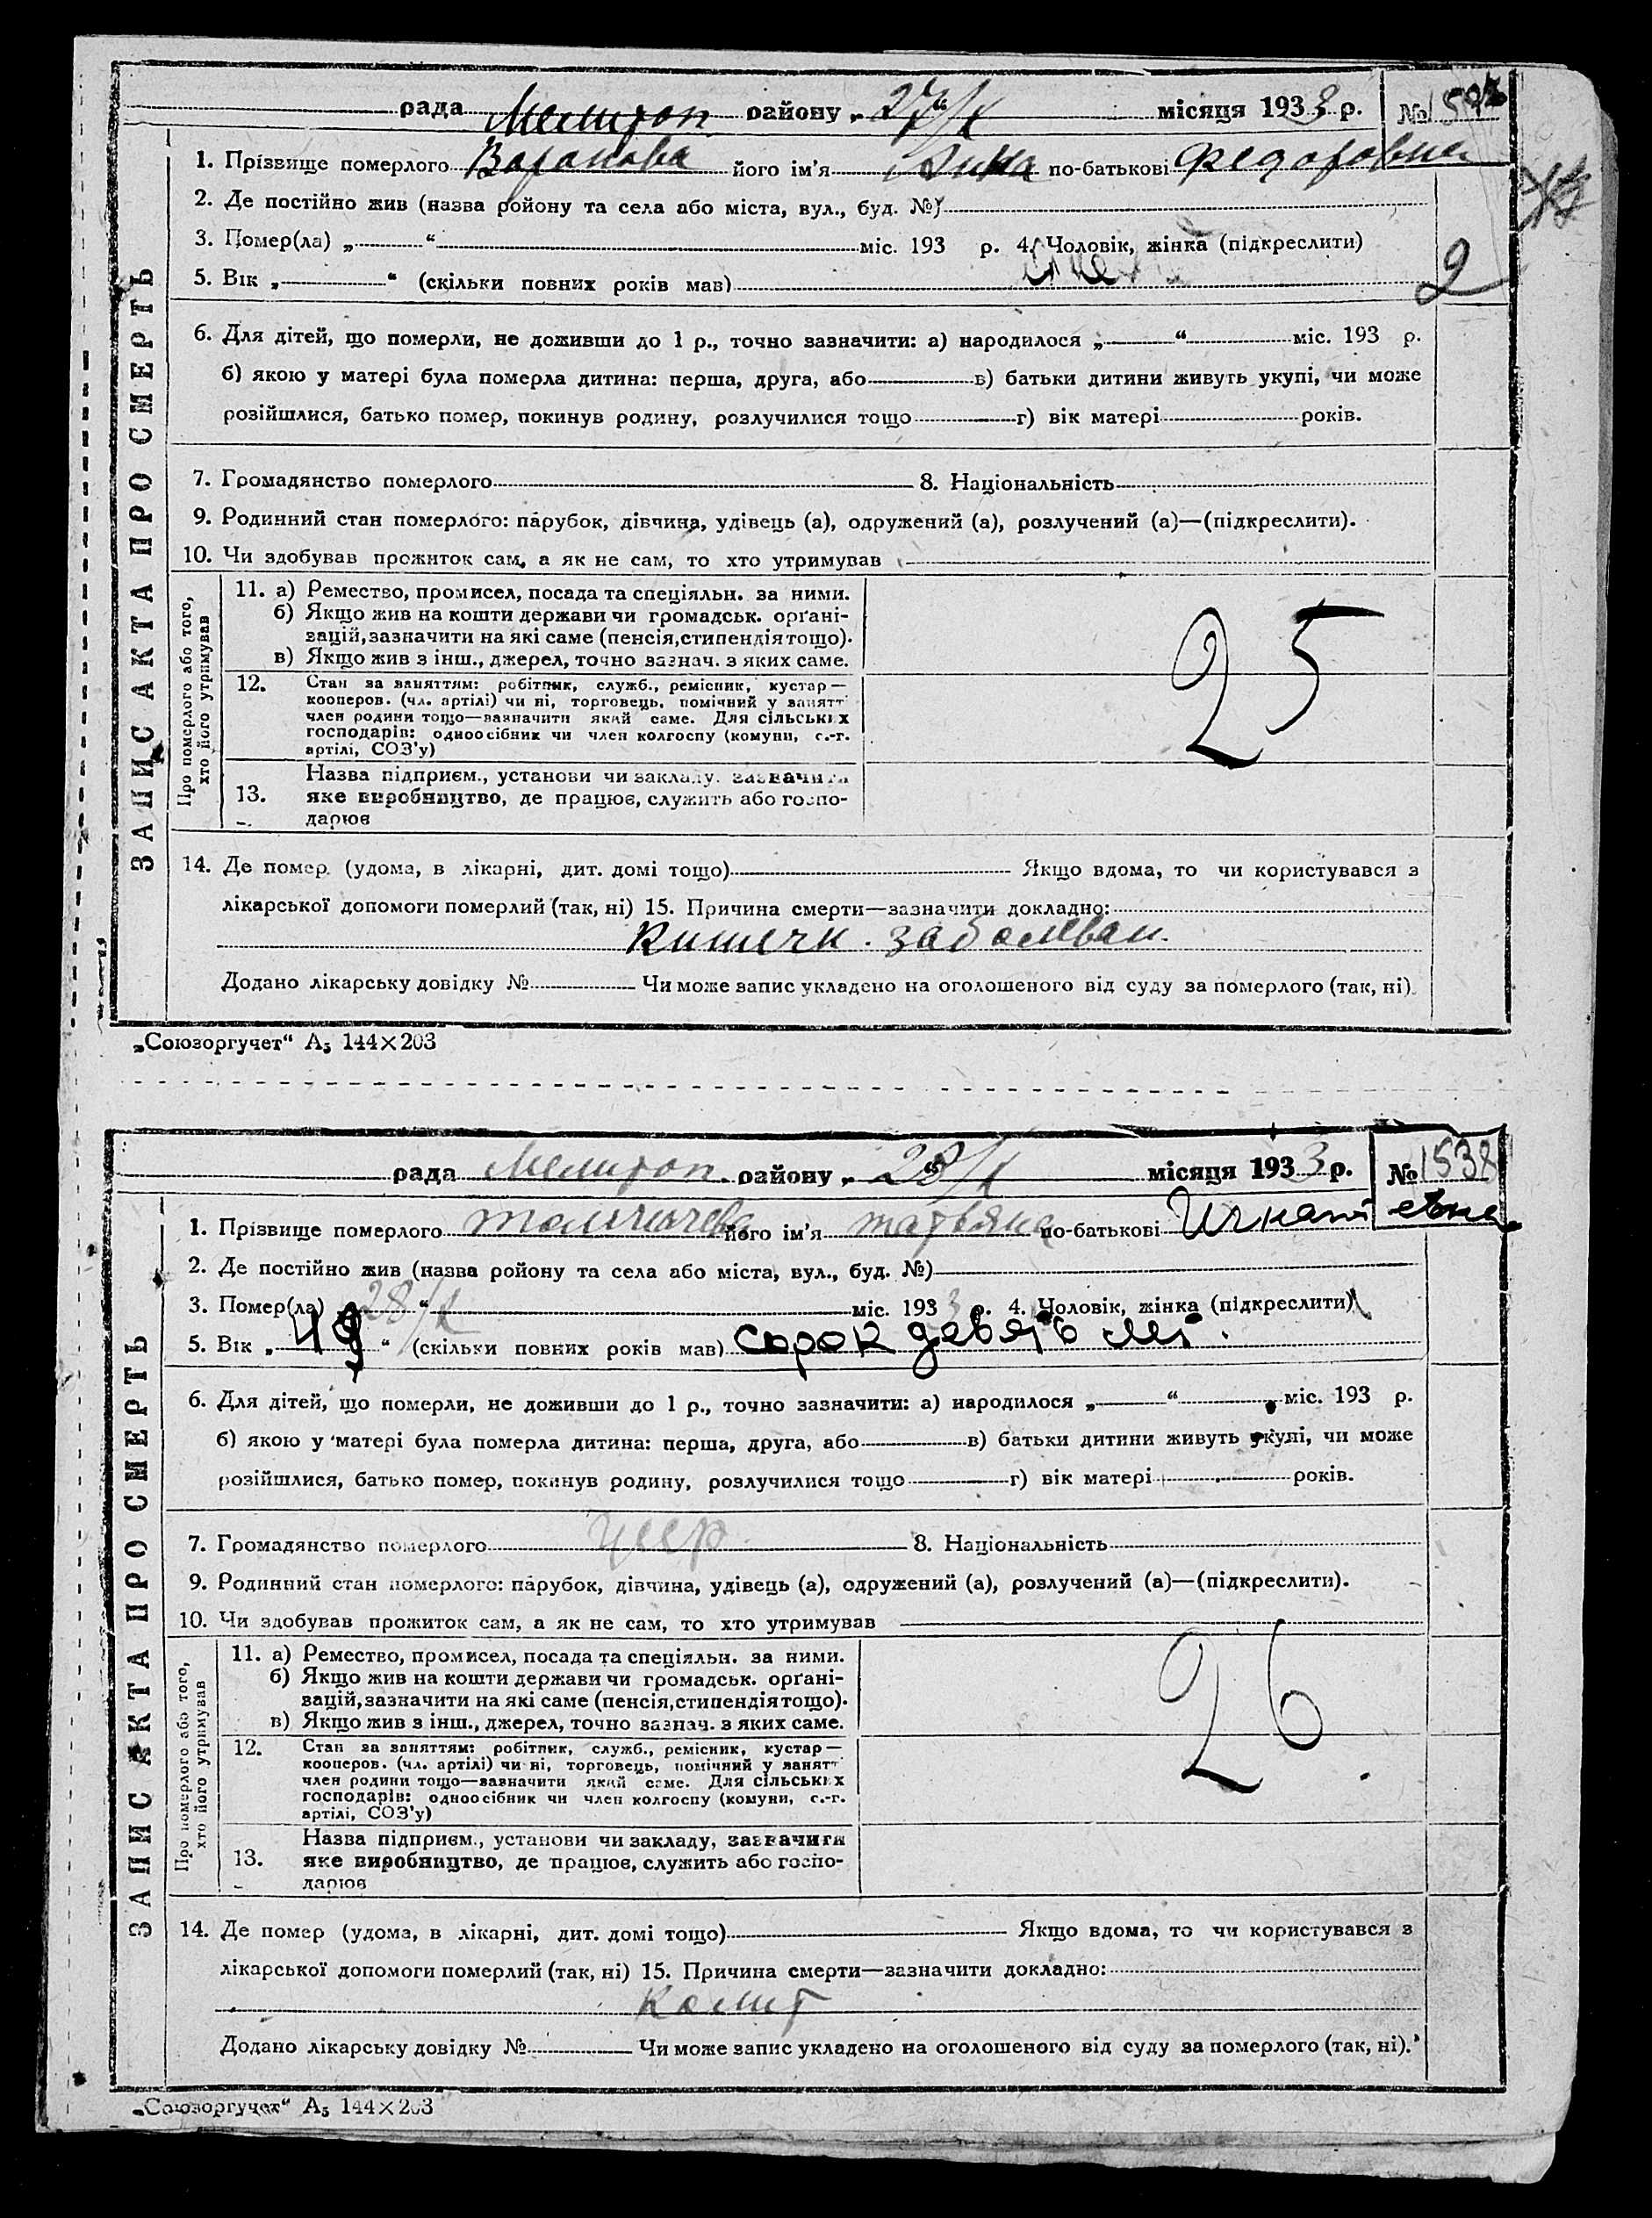 рада Мелитоп. району „27/X“ місяця 1933 р. №
1. Прізвище померлого Воронова його ім'я Анна по-батькові Федоровна
2. Де постійно жив (назва ройону та села або міста, вул., буд. №)
3. Помер(ла) „ “ міс. 193 р. 4. Чоловік, жінка (підкреслити)
5. Вік „ “ (скільки повних років мав)
2
6. Для дітей, що померли, не доживши до 1 р., точно зазначити: а) народилося „ “ міс. 193 р.
б) якою у матері була померла дитина: перша, друга, або в) батьки дитини живуть укупі, чи може
розійшлися, батько помер, покинув родину, розлучилися тощо г) вік матері років.
7. Громадянство померлого 8. Національність
9. Родинний стан померлого: парубок, дівчина, удівець (а), одружений (а), розлучений (а)—(підкреслити).
10. Чи здобував прожиток сам, а як не сам, то хто утримував
ЗАПИС АКТА ПРО СМЕРТЬ
Про померлого або того,
хто його утримував
11. а) Ремество, промисел, посада та спеціяльн. за ними.
б) Якщо жив на кошти держави чи громадськ. орґані-
зацій, зазначити на які саме (пенсія, стипендія тощо).
в) Якщо жив з інш., джерел, точно зазнач. з яких саме.
25
12. Стан за заняттям: робітник, служб., ремісник, кустар—
кооперов. (чл. артілі) чи ні, торговець, помічний у занятт
член родини тощо—зазначити який саме. Для сільських
господарів: одноосібник чи член колгоспу (комуни, с.-г.
артілі, СОЗ'у)
Назва підприєм., установи чи закладу, зазначити
13. яке виробництво, де працює, служить або госпо-
дарює
14. Де помер (удома, в лікарні, дит. домі тощо) Якщо вдома, то чи користувався з
лікарської допомоги померлий (так, ні) 15. Причина смерти—зазначити докладно:
Кишечн. заболеван.
Додано лікарську довідку № Чи може запис укладено на оголошеного від суду за померлого (так, ні).
„Союзоргучет“ А5 144×203
рада Мелитоп. району „28/X“ місяця 1933 р. № 1538
1. Прізвище померлого його ім'я Татьяна по-батькові
2. Де постійно жив (назва ройону та села або міста, вул., буд. №)
3. Помер(ла) „28/X“ міс. 1933 р. 4. Чоловік, жінка (підкреслити)
5. Вік „49“ (скільки повних років мав) сорок девять лет.
6. Для дітей, що померли, не доживши до 1 р., точно зазначити: а) народилося „ “ міс. 193 р.
б) якою у матері була померла дитина: перша, друга, або в) батьки дитини живуть укупі, чи може
розійшлися, батько помер, покинув родину, розлучилися тощо г) вік матері років.
7. Громадянство померлого 8. Національність
9. Родинний стан померлого: парубок, дівчина, удівець (а), одружений (а), розлучений (а)—(підкреслити).
10. Чи здобував прожиток сам, а як не сам, то хто утримував
ЗАПИС АКТА ПРО СМЕРТЬ
Про померлого або того,
хто його утримував
11. а) Ремество, промисел, посада та спеціяльн. за ними.
б) Якщо жив на кошти держави чи громадськ. орґані-
зацій, зазначити на які саме (пенсія, стипендія тощо).
в) Якщо жив з інш., джерел, точно зазнач. з яких саме.
26
12. Стан за заняттям: робітник, служб., ремісник, кустар—
кооперов. (чл. артілі) чи ні, торговець, помічний у занятт
член родини тощо—зазначити який саме. Для сільських
господарів: одноосібник чи член колгоспу (комуни, с.-г.
артілі, СОЗ'у)
Назва підприєм., установи чи закладу, зазначити
13. яке виробництво, де працює, служить або госпо-
дарює
14. Де помер (удома, в лікарні, дит. домі тощо) Якщо вдома, то чи користувався з
лікарської допомоги померлий (так, ні) 15. Причина смерти—зазначити докладно:
Колит
Додано лікарську довідку № Чи може запис укладено на оголошеного від суду за померлого (так, ні).
„Союзоргучет“ А5 144×203